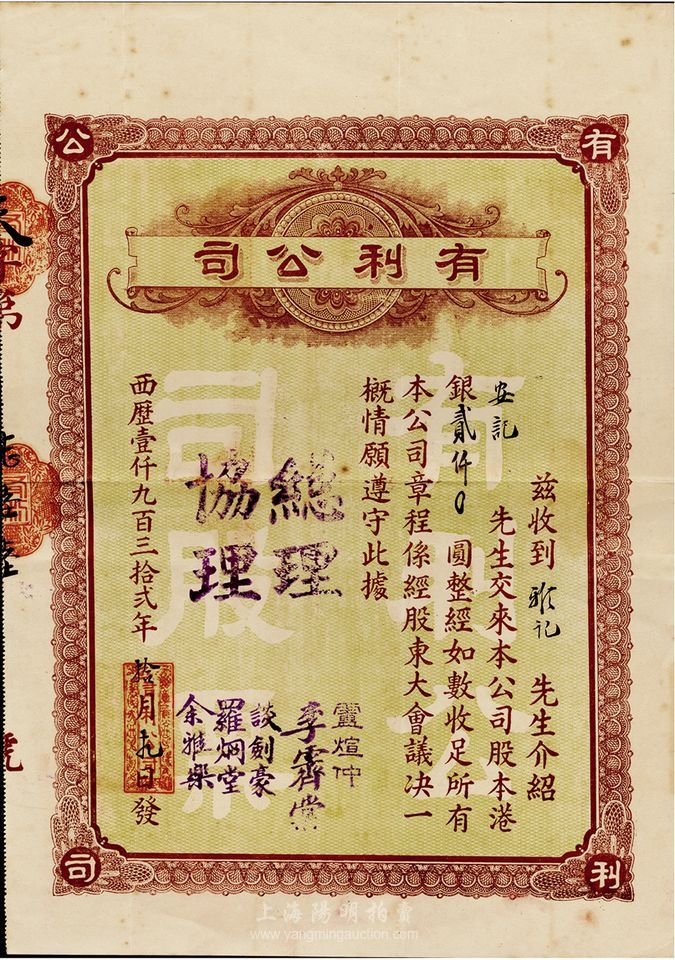 有利公司
有
公
利
司
茲收到雅記先生介紹
安記先生交來本公司股本港
銀貳仟0圓整經如數收足所有
本公司章程係經股東大會議決一
概情願遵守此據
總理
協理
李霽堂
談劍豪
羅炯堂
余雅樂
西歷壹仟九百三拾弍年拾月九日發
有利公司股票
號
上海陽明拍賣
www.yangmingauction.com